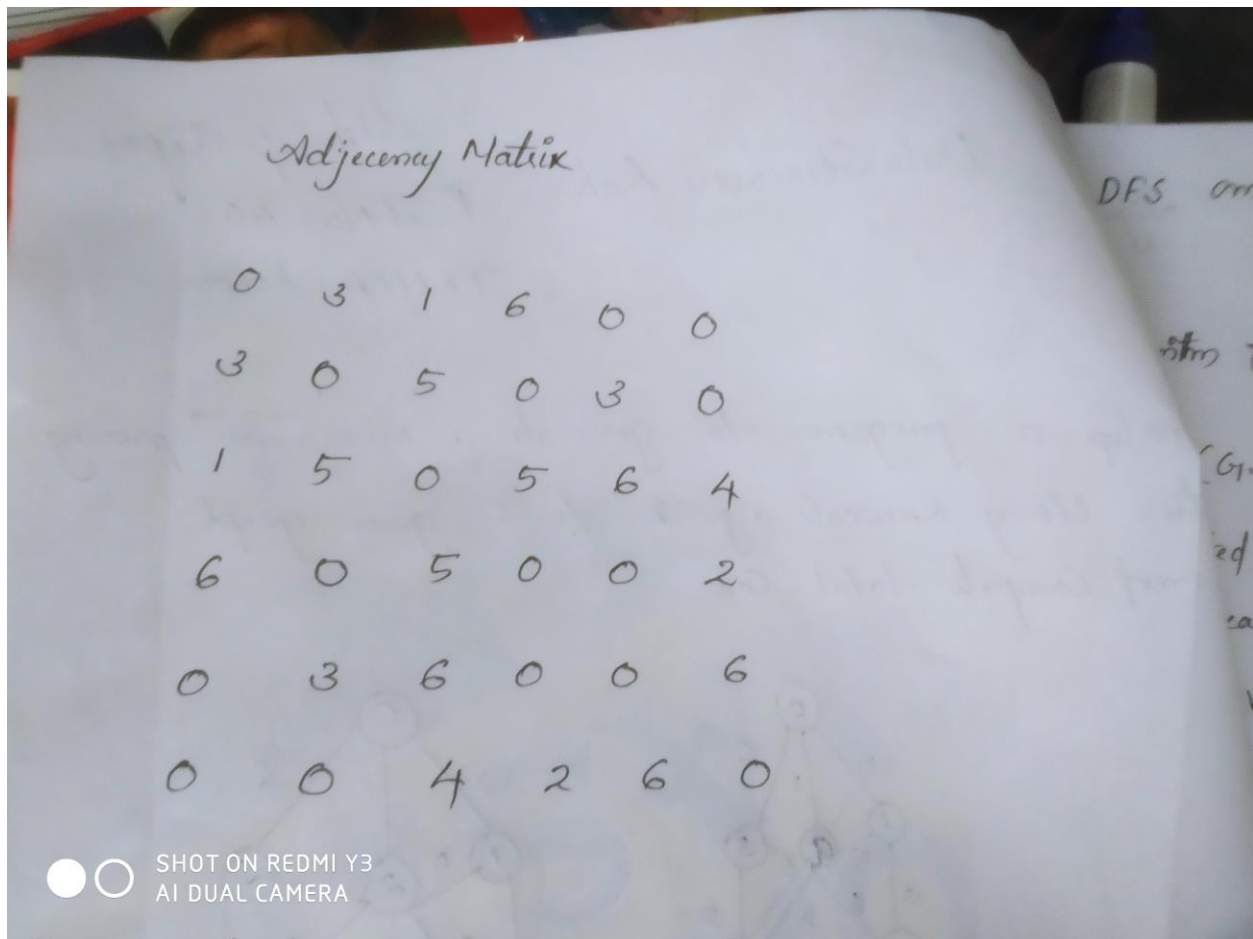 Adjecency Matrix
0 3 1 6 0 0
3 0 5 0 3 0
1 5 0 5 6 4
6 0 5 0 0 2
0 3 6 0 0 6
0 0 4 2 6 0
DFS
SHOT ON REDMI Y3
AI DUAL CAMERA